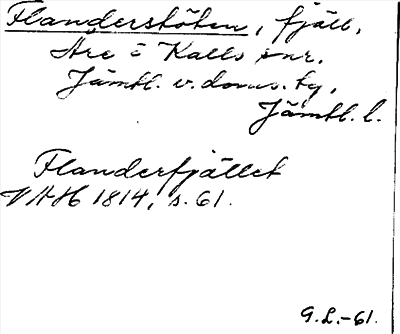 Flanderstöten, fjäll,
Åre o Kalls snr.
Jämtl. v. doms. tg,
Jämtl. l.
Flanderfjället
VAH 1814, s. 61.
G.L.-61.